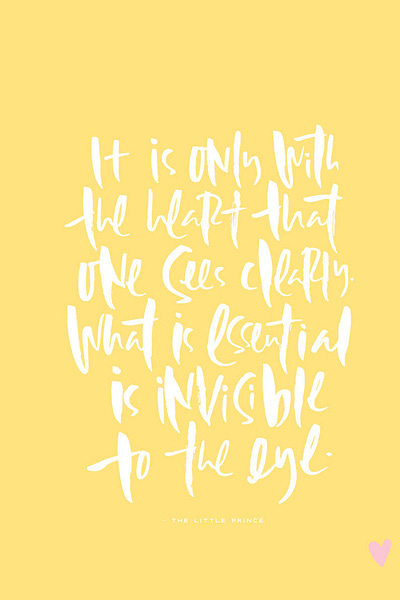 It is only with
the heart that
one sees clearly.
What is essential
is invisible
to the eye.
- THE LITTLE PRINCE